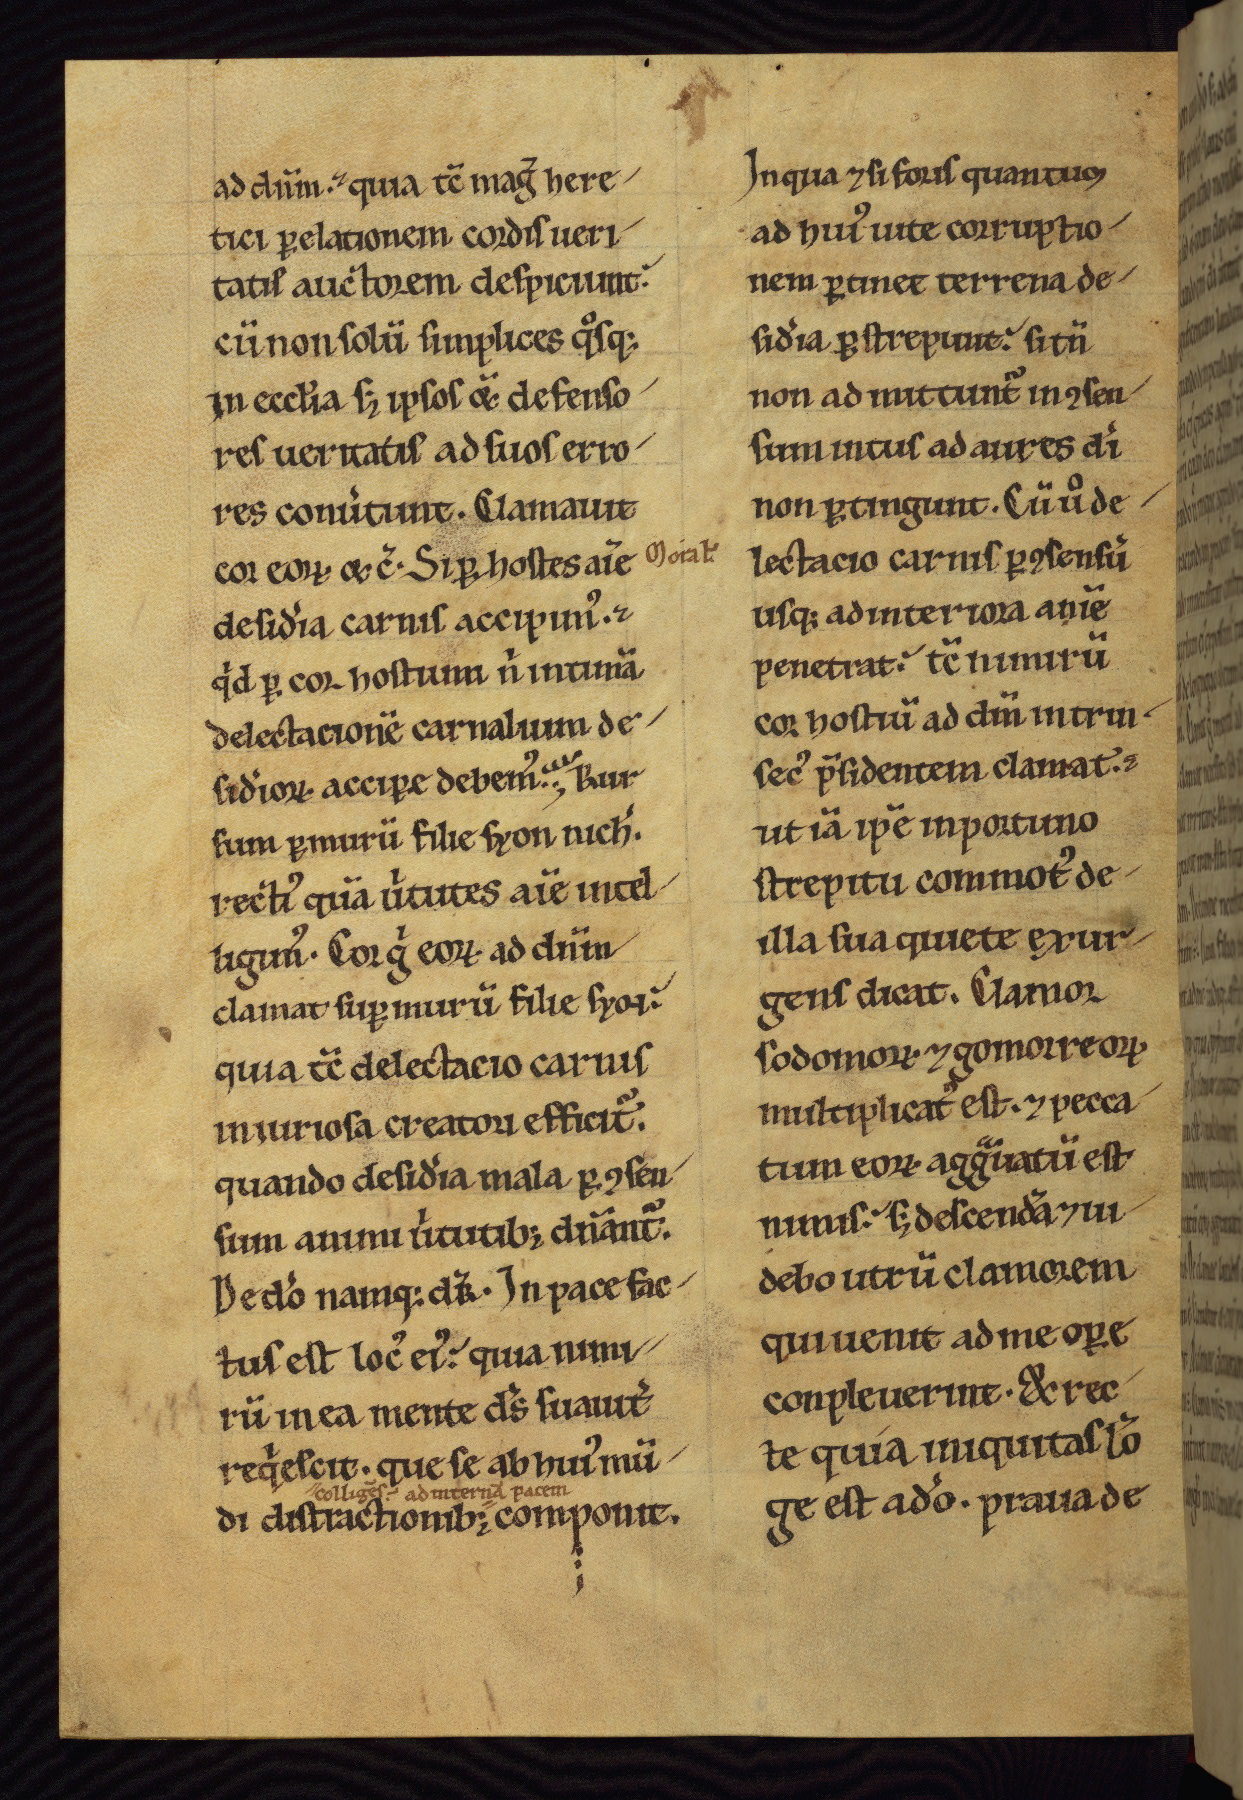 ad dñm. quia tc̄ mag̃ here
tici ꝑ elationem cordis ueri
tatis auctorem despiciunt.
cū non solū simplices qͦsq;
in ecclīa sꝫ ipsos &̄ defenso
res ueritatis ad suos erro
res conũtunt. Clamauit
cor eoꝝ &c̄. Si ꝑ hostes aīe
desidia carnis accipimꝰ.
qͥd ꝑ cor hostium n̄ intimā
delectacionē carnalium de
sidioꝝ accipe debemꝰ. Rur
sum ꝑ murū filie syon nich̄.
rectiꝰ quā ũtutes aīe intel
ligimꝰ. Cor gͥ eoꝝ ad dñm
clamat suꝑ murū filie syon.
quia tc̄ delectacio carnis
iniuriosa creatori efficit᷑.
quando desidia mala ꝑ ꝯsen
sum animi ũtutibꝫ dn̄ant᷑.
De dō namq; dr̄. In pace fac
tus est locꝰ eiꝰ. quia nimi
rū in ea mente dš suauit̄
reqͥescit. que se ab huiꝰ mū
colliges ad internā pacem
di distractionibꝫ componit.
Moral̄
In qua ⁊ si foris quantum
ad huiꝰ uite corruptio
nem ꝑtinet terrena de
sidia ꝑstrepunt. si tn̄
non admittunt᷑ in ꝯsen
sum intus ad aures dī
non ꝑtingunt. Cū uͦ de
lectacio carnis ꝑ ꝯsensū
usq; ad interiora anīe
penetrat. tc̄ nimirū
cor hostiū ad dñm intrin
secꝰ p̄sidentem clamat.
ut iā ipē inportuno
strepitu commotꝰ de
illa sua quiete exur
gens dicat. Clamor
sodomoꝝ ⁊ gomorreoꝝ
multiplicatꝰ est. ⁊ pecca
tum eoꝝ agg̃uatū est
nimis. sꝫ descendā ⁊ ui
debo utrū clamorem
qui uenit ad me oꝑe
conpleuerint. & rec
te quia iniquitas lō
ge est a dō. praua de